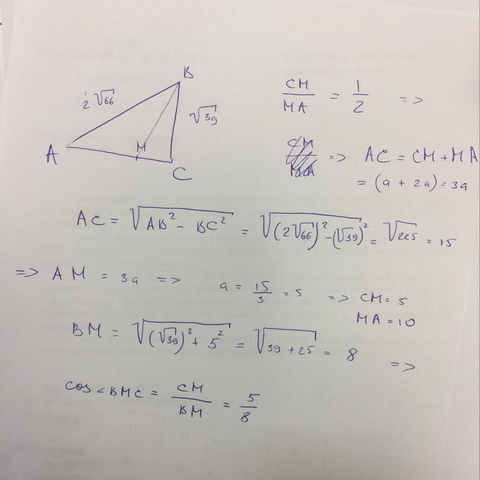 B
2√66
√39
A
M
C
CM/MA = 1/2 =>
CM/MA => AC = CM + MA
= (a + 2a) = 3a
AC = √AB² - BC² = √(2√66)² - (√39)² = √225 = 15
=> AM = 3a => a = 15/3 = 5 => CM = 5
MA = 10
BM = √(√39)² + 5² = √39 + 25 = 8 =>
cos∠BMC = CM/BM = 5/8